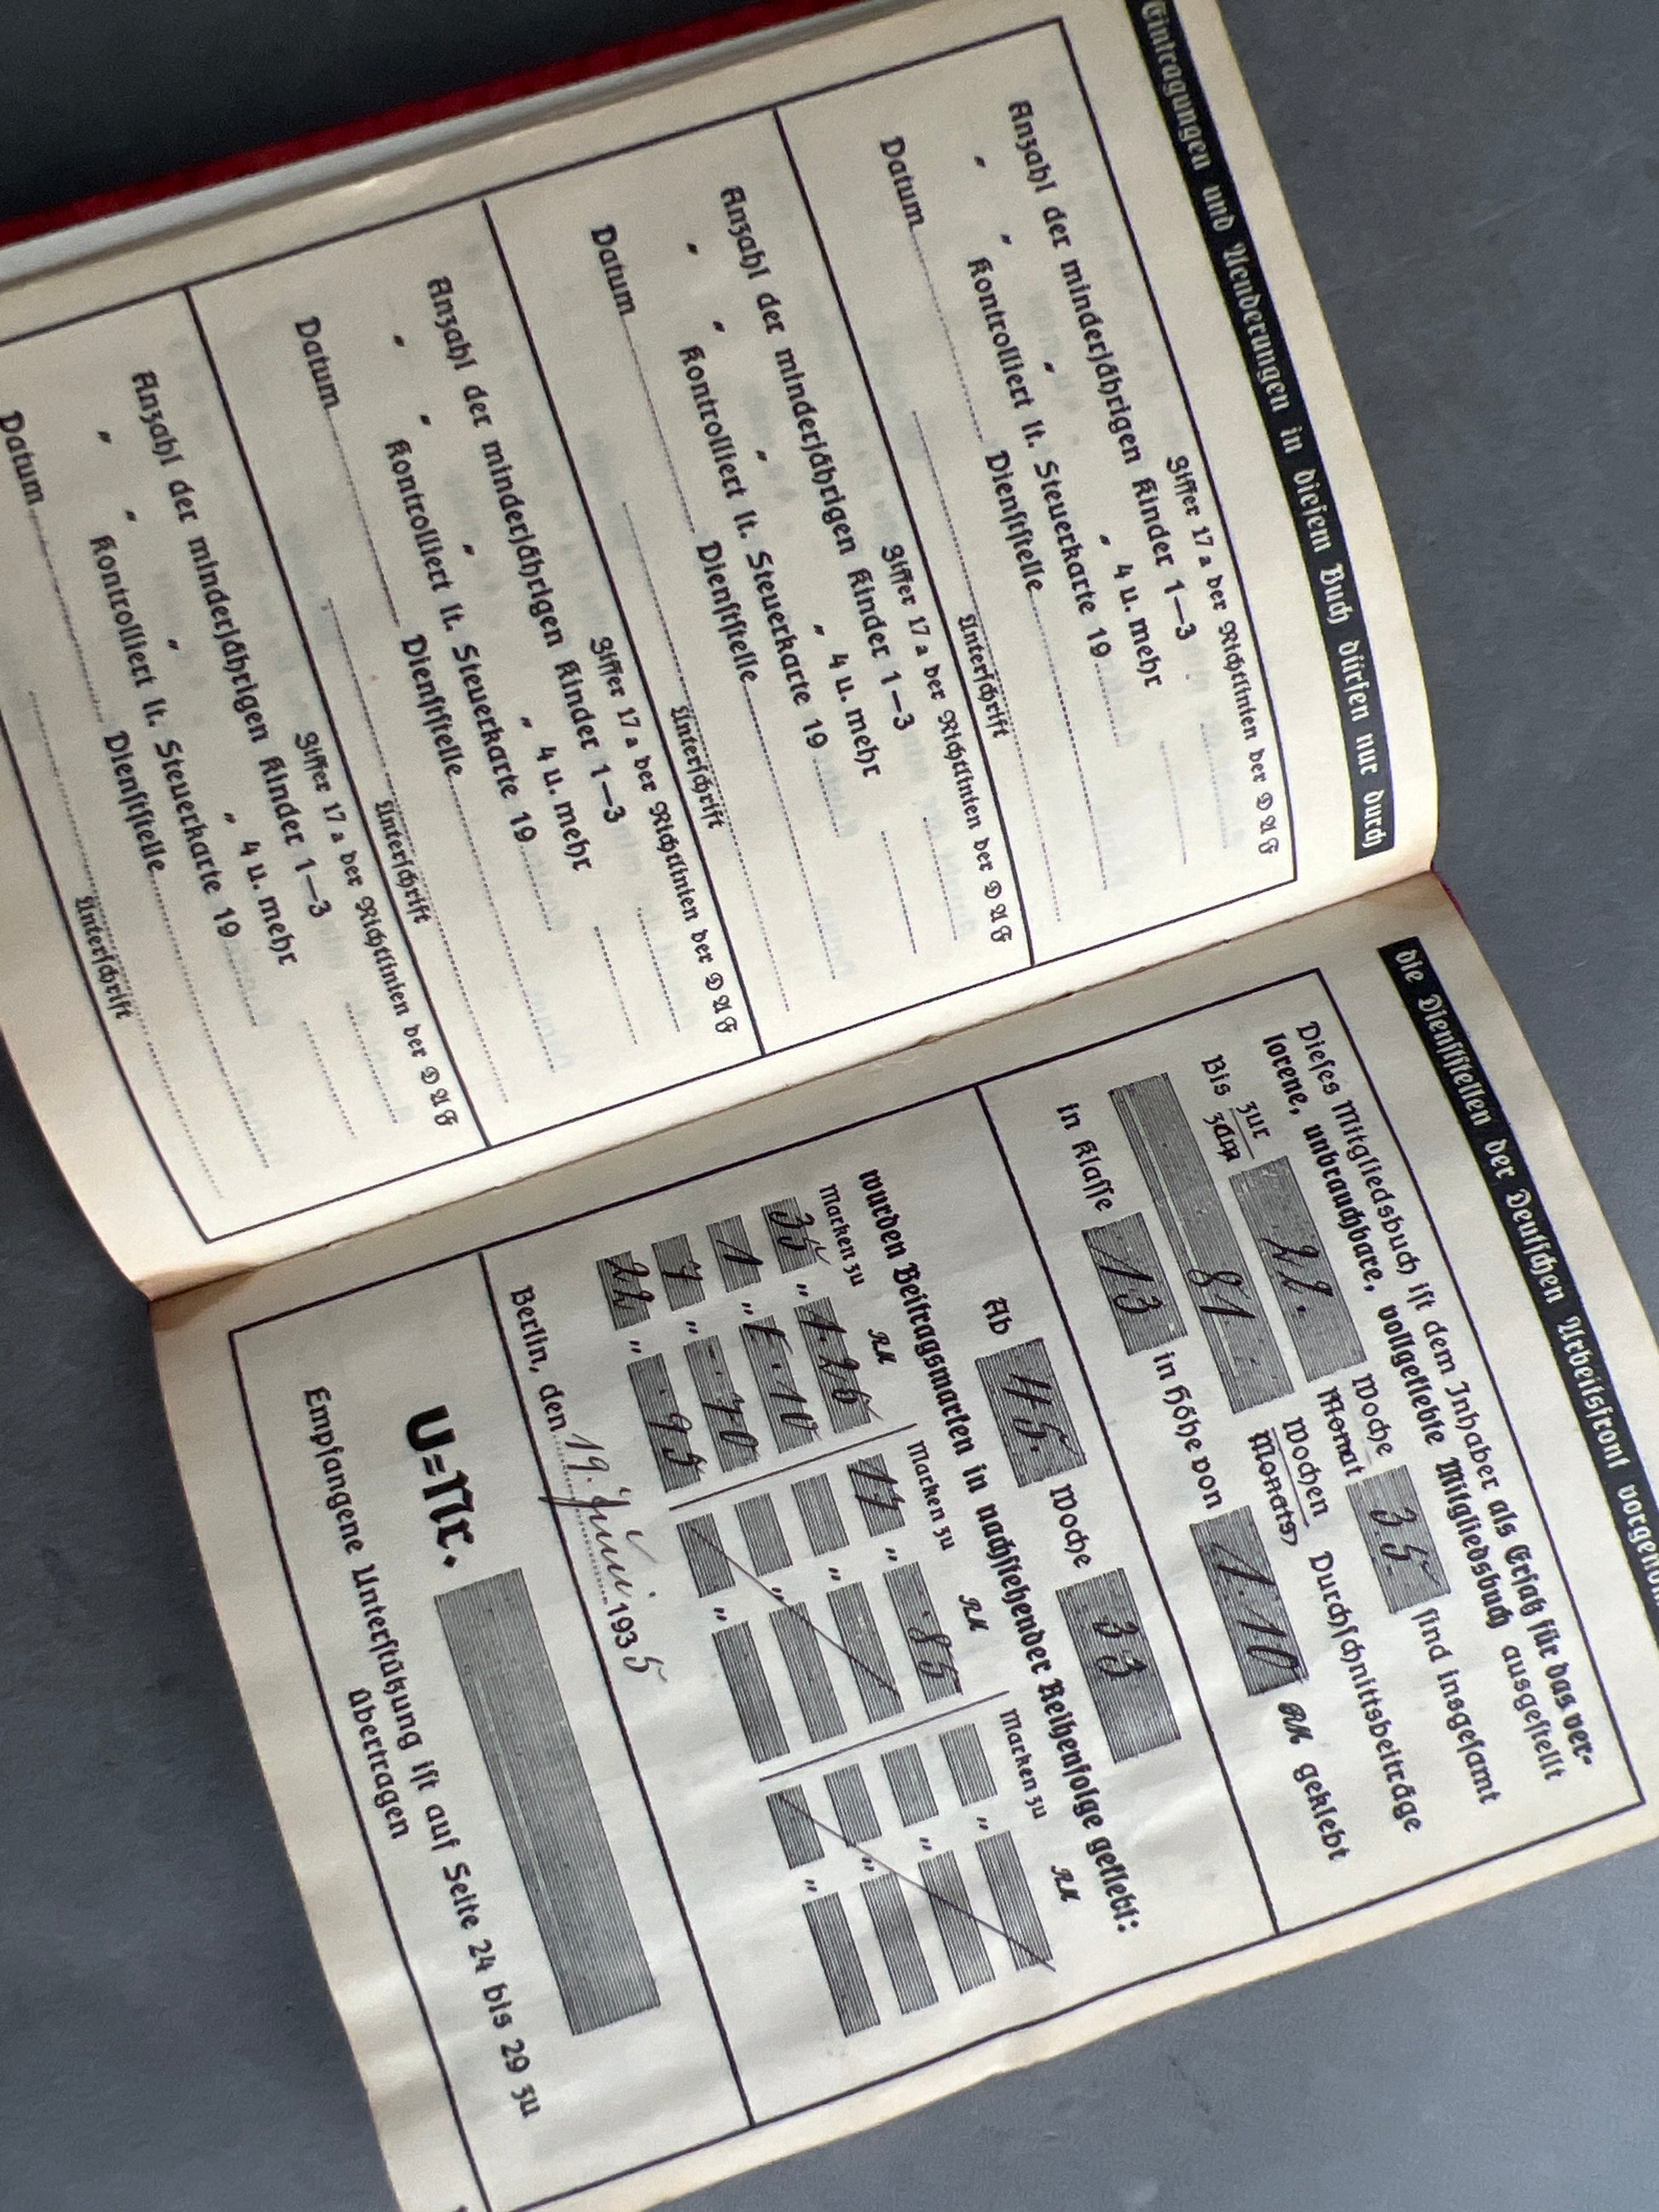 Eintragungen und Aenderungen in diesem Buch dürfen nur durch
Ziffer 17 a der Richtlinien der DAF
Anzahl der minderjährigen Kinder 1—3
" " " " 4 u. mehr
Kontrolliert lt. Steuerkarte 19
Datum Dienststelle
Unterschrift
Ziffer 17 a der Richtlinien der DAF
Anzahl der minderjährigen Kinder 1—3
" " " " 4 u. mehr
Kontrolliert lt. Steuerkarte 19
Datum Dienststelle
Unterschrift
Ziffer 17 a der Richtlinien der DAF
Anzahl der minderjährigen Kinder 1—3
" " " " 4 u. mehr
Kontrolliert lt. Steuerkarte 19
Datum Dienststelle
Unterschrift
Ziffer 17 a der Richtlinien der DAF
Anzahl der minderjährigen Kinder 1—3
" " " " 4 u. mehr
Kontrolliert lt. Steuerkarte 19
Datum Dienststelle
Unterschrift
die Dienststellen der Deutschen Arbeitsfront
Dieses Mitgliedsbuch ist dem Inhaber als Ersatz für das ver-
lorene, unbrauchbare, vollgeklebte Mitgliedsbuch ausgestellt
Bis zur zum Woche Monat 35 sind insgesamt
81 Wochen Monats Durchschnittsbeiträge
in Klasse 13 in Höhe von 1.10 RM geklebt
Ab 45. Woche 33
wurden Beitragsmarken in nachstehender Reihenfolge geklebt:
Marken zu RM Marken zu RM Marken zu RM
35 " 1.25 17 " -.85 "
1 " 1.10 " "
7 " -.70 " "
22 " -.95 " "
Berlin, den 19. Juni 1935
U=Nr.
Empfangene Unterstützung ist auf Seite 24 bis 29 zu
übertragen